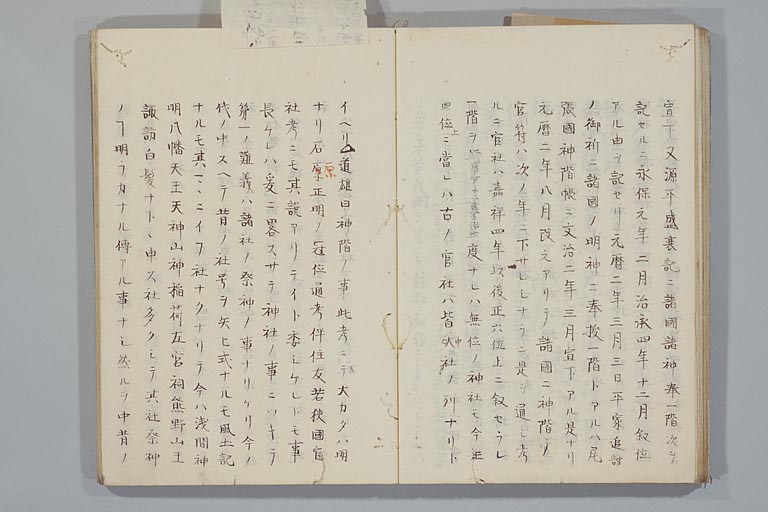 宣下又源平盛衰記ニ諸國諸神奉一階次ヲ
記セルニ永保元年二月治承四年十二月叙位
アル由ヲ記セリ元暦二年三月三日平家追討
ノ御祈ニ諸國ノ明神ニ奉授一階トアルハ尾
張國神階帳ニ文治二年三月宣下アル是ナリ
元暦二年八月改元アリテ諸國ニ神階ノ
官符ハ次ノ年ニ下サレシナラン是ヲ通シ考
ルニ官社ハ嘉祥四年以後正六位上ニ叙セラレ
一階ヲ 度ナレハ無位ノ神社モ今正
四位上ニ當レハ古ノ官社ハ皆中社ノ列ナリト
イヘリ△道雄曰神階ノ事此考ニテ大カタハ明
ナリ石原正明ノ冠位通考伴信友若狹國官
社考ニモ其説アリテイト委シケレドモ事
長ケレハ爰ニ畧スサテ神社ノ事ニツキテ
第一ノ難義ハ諸社ノ祭神ノ事ナリケリ今ノ
代ノ中スヘテ昔ノ社号ヲ失ヒ式ナルモ風土記
ナルモ其マヽニイフ社ナクナリテ今ハ浅間神
明八幡天王天神山神稲荷左官祠熊野山王
諏訪白髪ナトヽ申ス社多クシテ其社祭神
ノヿ明ラカナル傳アル事ナシ然ルヲ中昔ノ